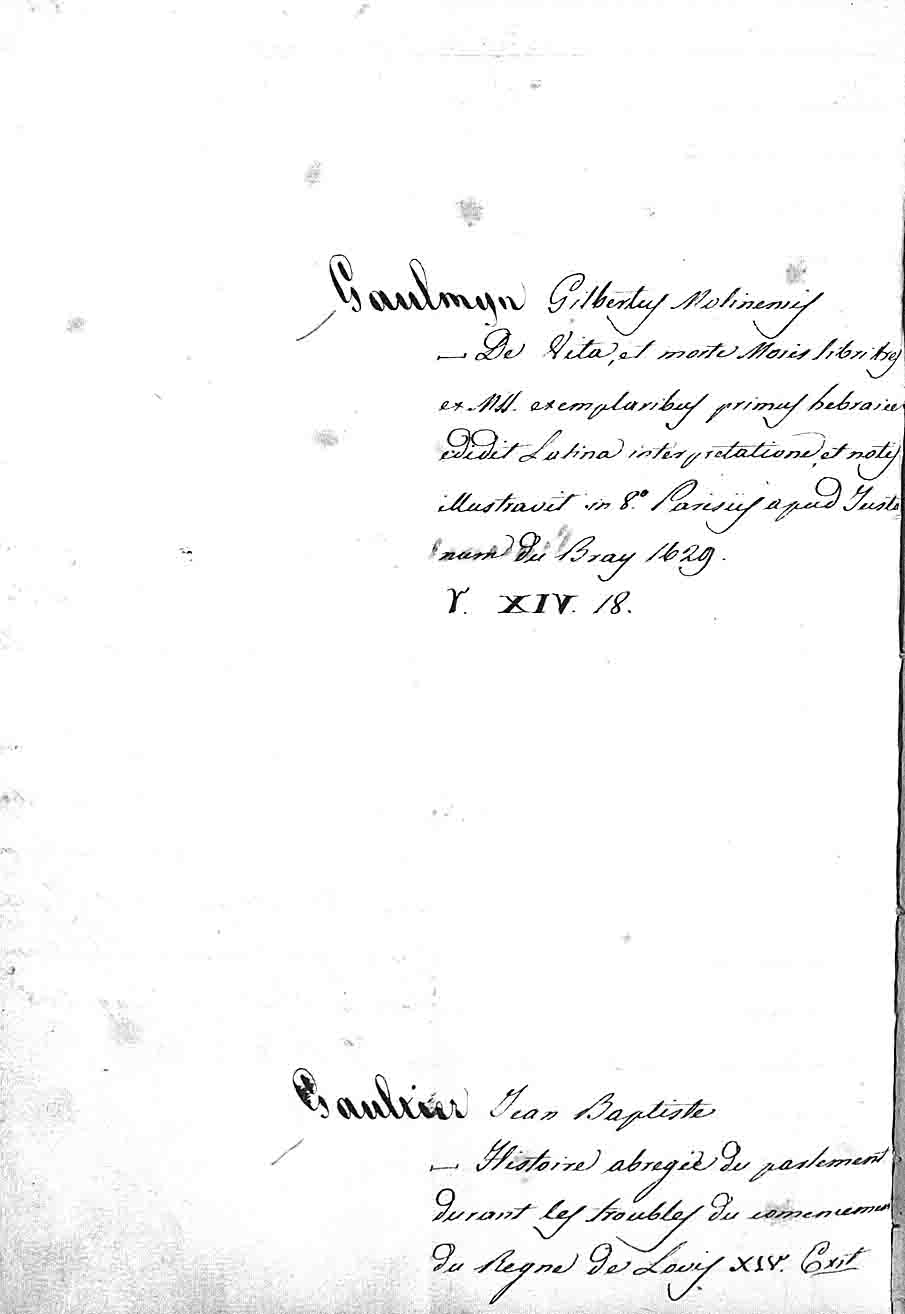 Gaulmyn Gilbertus Molinensis
— De Vita, et morte Mosis libri tres
ex MSS. exemplaribus primus hebraice
edidit Latina interpretatione, et notis
illustravit in 8.º Parisiis apud Tusta-
num du Bray 1629.
V. XIV. 18.
Gaultier Jean Baptiste
— Histoire abregèe du parlement
durant les troubles du comencemen
du Regne de Louis XIV. Exit